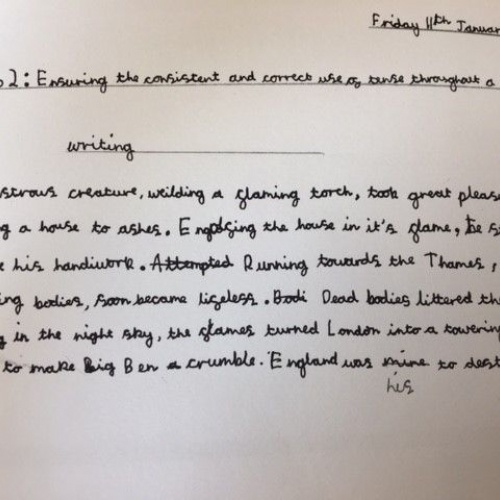 Friday 11th Januar
2: Ensuring the consistent and correct use of tense throughout a
writing
strous creature, weilding a flaming torch, took great pleas
g a house to ashes. Engolfing the house in it's flame, be s
e his handiwork. Attempted Running towards the Thames,
ing bodies, soon became lifeless. Bodi Dead bodies littered th
g in the night sky, the flames turned London into a towering
to make Big Ben a crumble. England was mine to dest
his